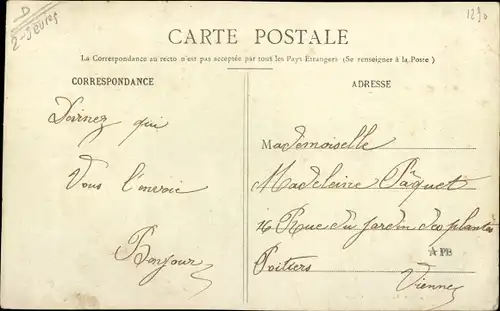 D
2-Sèvres
1290
CARTE POSTALE
La Correspondance au recto n'est pas acceptée par tous les Pays Étrangers (Se renseigner à la Poste)
CORRESPONDANCE
ADRESSE
Devinez qui
Vous l'envoie
Bonjour
Mademoiselle
Madeleine Pâquet
16 Rue du jardin des plantes
APB
Poitiers
Vienne